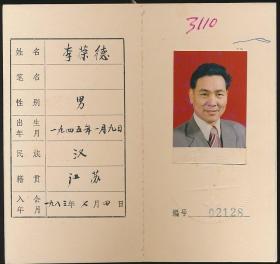 3110
姓名 李荣德
笔名
性别 男
出生年月 一九四五年一月九日
民族 汉
籍贯 江苏
入会年月 一九八三年 月四日
编号 02128